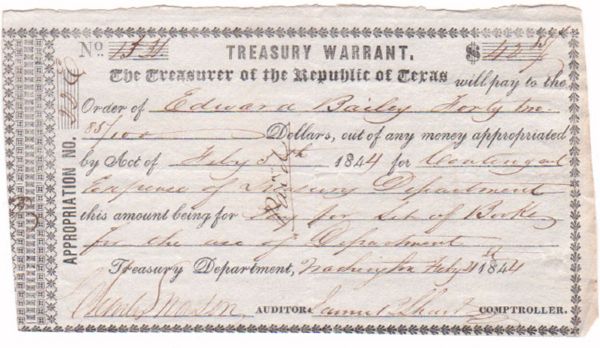 No 154 TREASURY WARRANT. $ 42 85/
The Treasurer of the Republic of Texas will pay to the
Order of Edward Bailey Forty two
85/100 Dollars, out of any money appropriated
by Act of Feby 5th 1844 for Contingent
Expense of Treasury Department
this amount being for for Set of Books
for the use of Department
Treasury Department, Washington Feby 1844
Charles Mason AUDITOR COMPTROLLER.
APPROPRIATION NO.
Paid